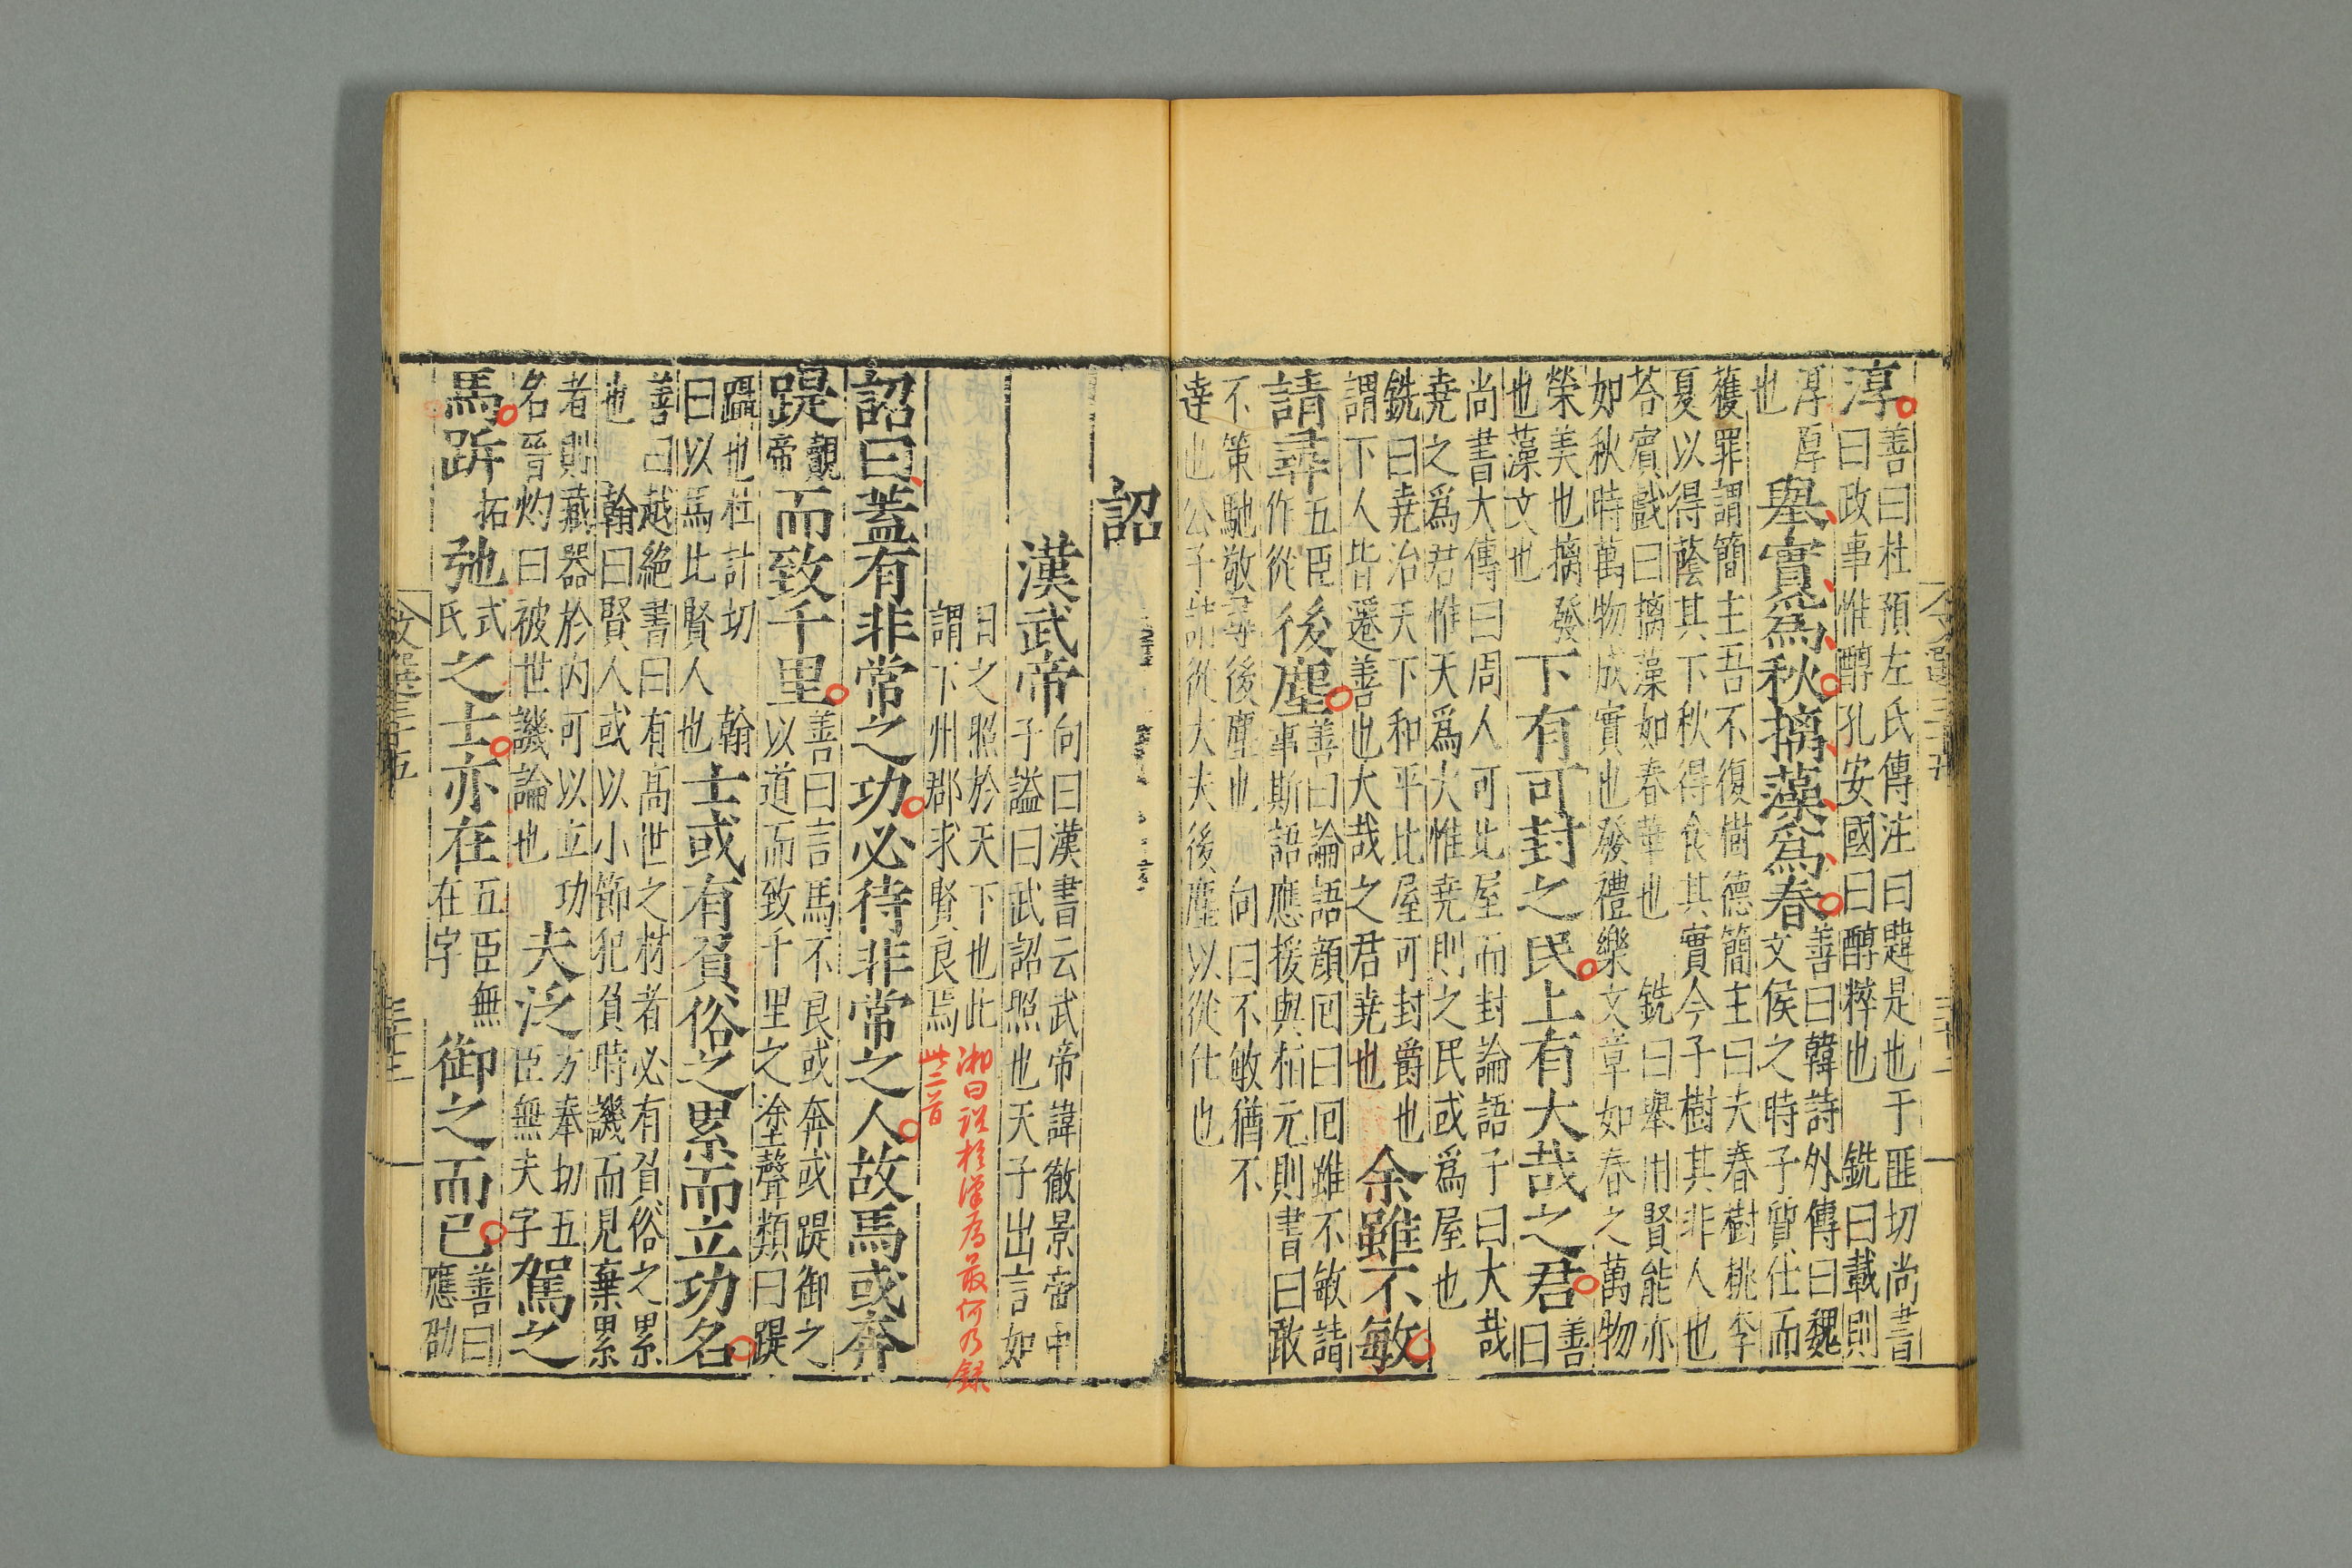 淳
善曰杜預左氏傳注曰韙是也于匪切尚書
曰政事惟醇孔安國曰醇粹也　銑曰載則
淳厚
也
舉實爲秋摛藻爲春
善曰韓詩外傳曰魏
文侯之時子質仕而
獲罪謂簡主吾不復樹德簡主曰夫春樹桃李
夏以得蔭其下秋得食其實今子樹其非人也
荅賓戲曰摛藻如春華也　銑曰舉用賢能亦
如秋時萬物成實也發禮樂文章如春之萬物
榮美也摛發
也藻文也
下有可封之民上有大哉之君
善
曰
尚書大傳曰周人可比屋而封論語子曰大哉
堯之爲君惟天爲大惟堯則之民或爲屋也
銑曰堯治天下和平比屋可封爵也
謂下人皆遷善也大哉之君堯也
余雖不敏
請尋
五臣
作從
後塵
善曰論語顔回曰回雖不敏請
事斯語應援與栢元則書曰敢
不策馳敬尋後塵也　向曰不敏猶不
達也公子請從大夫後塵以從仕也
詔
漢武帝
向曰漢書云武帝諱徹景帝中
子謚曰武詔照也天子出言如
日之照於天下也此
謂下州郡求賢良焉
湘曰詔於漢爲最何乃録
此二首
詔曰蓋有非常之功必待非常之人故馬或奔
踶
觀
帝
而致千里
善曰言馬不良或奔或踶御之
以道而致千里之塗聲類曰踶
躡也杜計切　翰
曰以馬比賢人也
士或有負俗之累而立功名
善曰越絶書曰有高世之材者必有負俗之累
也　翰曰賢人或以小節犯負時譏而見棄累
者則藏器於内可以立功
名晉灼曰被世譏論也
夫泛
方奉切五
臣無夫字
駕之
馬跅
拓
弛
式
氏
之士亦在
五臣無
在字
御之而已
善曰
應劭
文選三十五